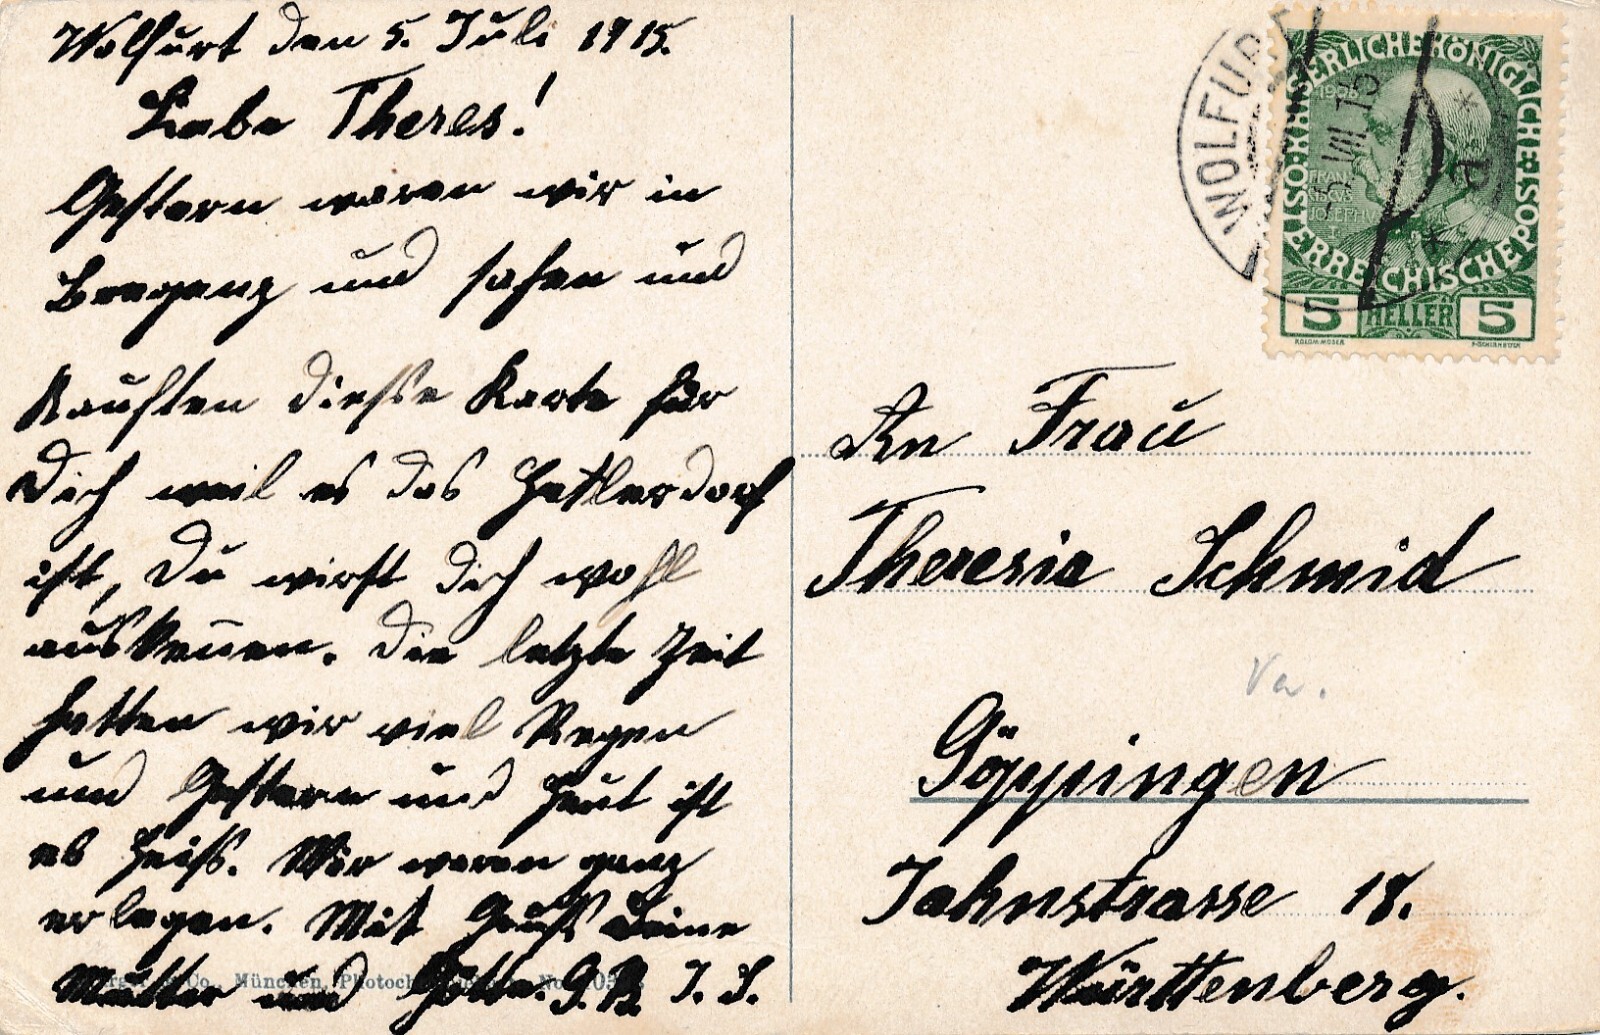 Wolfurt den 5. Juli 1915.
Liebe Theres!
Gestern waren wir in
Bregenz und sahen und
kauften diesse Karte für
Dich weil es das Hatlerdorf
ist, Du wirst dich wohl
auskennen. Die letzte Zeit
hatten wir viel Regen
und Gestern und heut ist
es heiss. Wir waren ganz
erlegen. Mit Gruss Deine
Mutter und Gotte. G. B. J. S.
Co., München, Photoch
WOLFURT
5 VII 15
a
KAISERLICHE KÖNIGLICHE
ÖSTERREICHISCHE POST
1908
FRAN
CISCVS
JOSEPHVS
I
5 HELLER 5
KOLOM·MOSER
F·SCHIRNBÖCK
An Frau
Theresia Schmid
Va.
Göppingen
Jahnstrasse 18.
Württenberg.